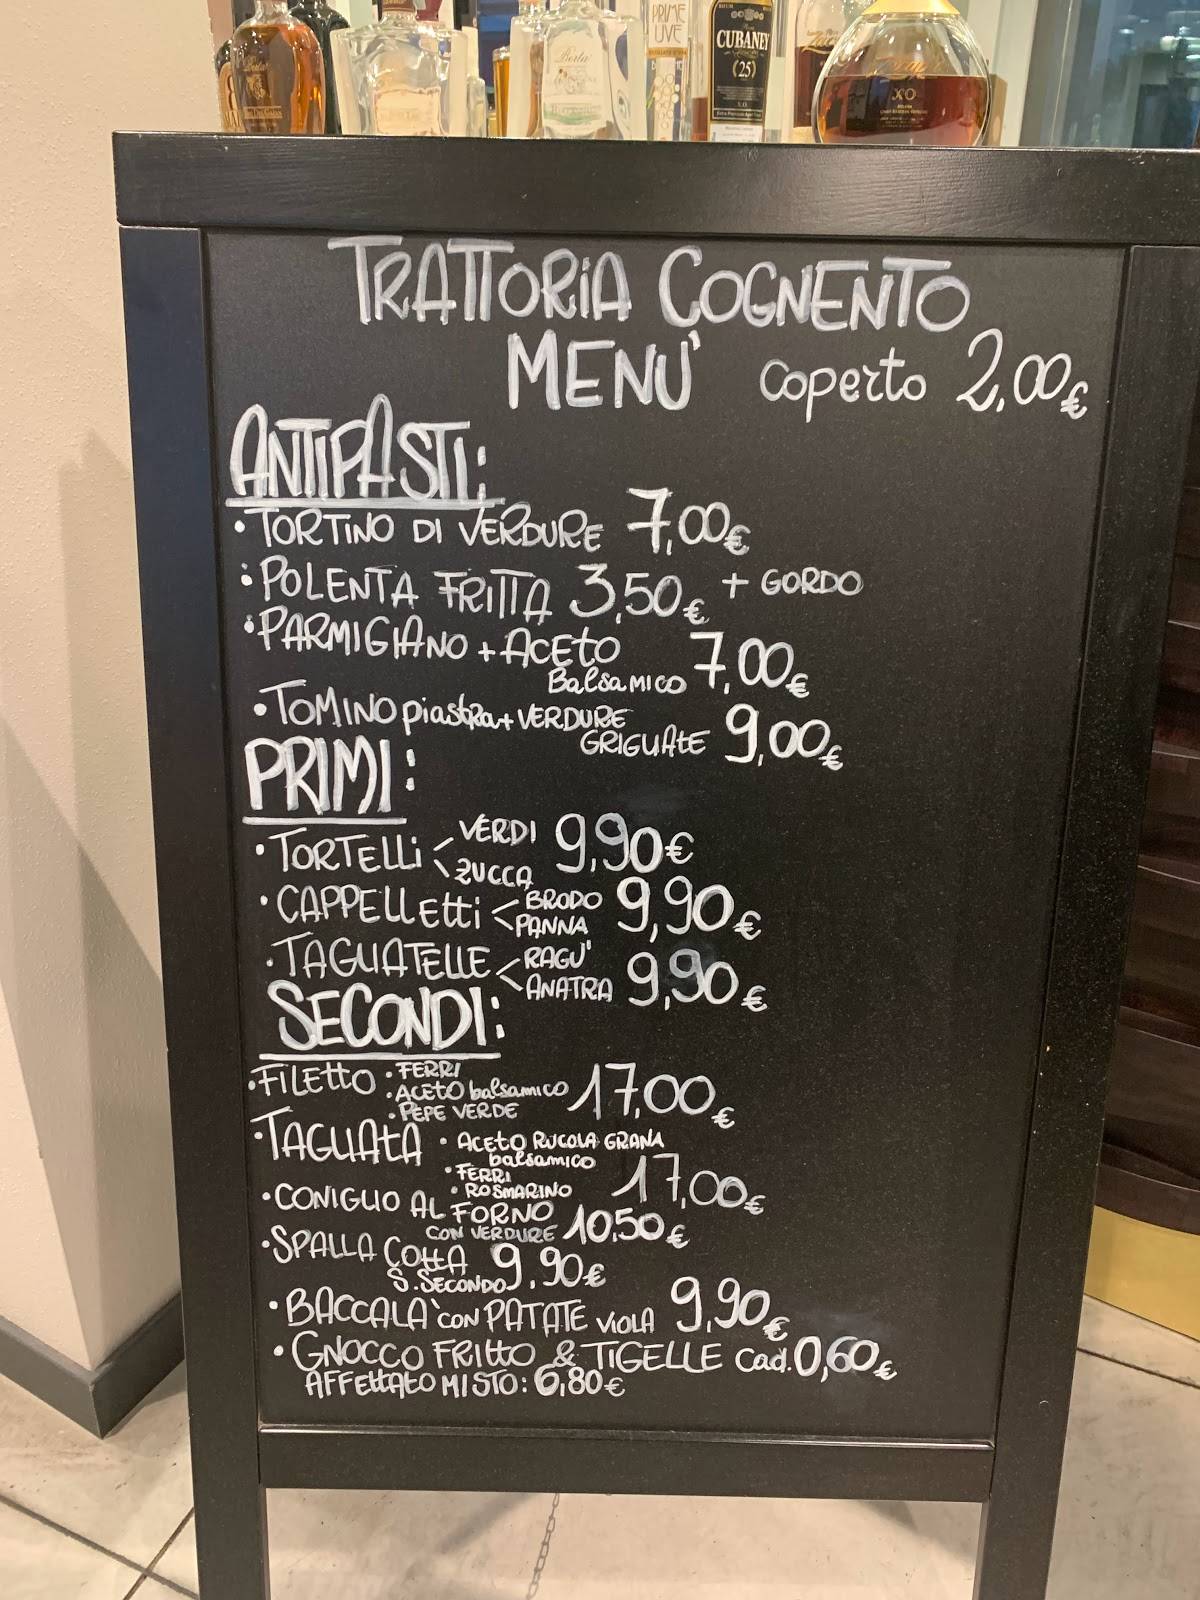 PRIME
UVE
CUBANEY
(25)
X.O
Berta
Berta
XO
TRATTORIA COGNENTO
MENU' coperto 2,00€
ANTIPASTI:
• TORTINO DI VERDURE 7,00€
• POLENTA FRITTA 3,50€ + GORDO
• PARMIGIANO + ACETO
BALSAMICO 7,00€
• TOMINO piastra + VERDURE
GRIGLIATE 9,00€
PRIMI:
• TORTELLI < VERDI 9,90€
ZUCCA
• CAPPELLETTI < BRODO 9,90€
PANNA
• TAGLIATELLE < RAGU' 9,90€
ANATRA
SECONDI:
• FILETTO • FERRI
• ACETO balsamico 17,00€
• PEPE VERDE
• TAGLIATA • ACETO RUCOLA GRANA
balsamico
• FERRI
• ROSMARINO 17,00€
• CONIGLIO AL FORNO
CON VERDURE 10,50€
• SPALLA COTTA 9,90€
S. SECONDO
• BACCALA' con PATATE VIOLA 9,90€
• GNOCCO FRITTO & TIGELLE cad. 0,60€
AFFETTATO MISTO: 6,80€